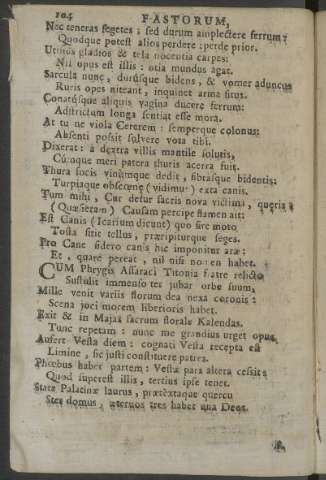 104 FASTORUM,
Nec teneras segetes; sed durum amplectere ferrum:
Quodque potest alios perdere; perde prior.
Utilius gladios & tela nocentia carpes:
Nil opus est illis: otia mundus agat.
Sarcula nunc, durusque bidens, & vomer aduncus
Ruris opes niteant, inquinet arma situs.
Conatusque aliquis vagina ducere ferrum:
Adstrictum longa sentiat esse mora.
At tu ne viola Cererem: semperque colonus:
Absenti possit solvere vota tibi.
Dixerat: à dextra villis mantile solutis,
Cumque meri patera thuris acerra fuit.
Thura focis vinumque dedit, fibrasque bidentis:
Turpiaque obscœnę (vidimus) exta canis.
Tum mihi, Cur detur sacris nova victima, queris?
(Quæsieram) Causam percipe flamen ait:
Est Canis (Icarium dicunt) quo sire moto
Tosta sitit tellus, præripiturque seges.
Pro Cane sidero canis hic imponitur aræ:
Et, quarè pereat, nil nisi nomen habet.
CUM Phrygis Assaraci Titonia fratre relicto
Sustulit immenso ter jubar orbe suum,
Mille venit variis florum dea nexa coronis:
Scena joci morem liberioris habet.
Exit & in Majas sacrum florale Kalendas.
Tunc repetam: nunc me grandius urget opus.
Aufert Vesta diem: cognati Vesta recepta est
Limine, sic justi constituere patres.
Phœbus habet partem: Vestæ pars altera cessit:
Quod superest illis, tertius ipse tenet.
State Palatinæ laurus, prætextaque quercu
Stet domus, æternos tres habet una Deos.